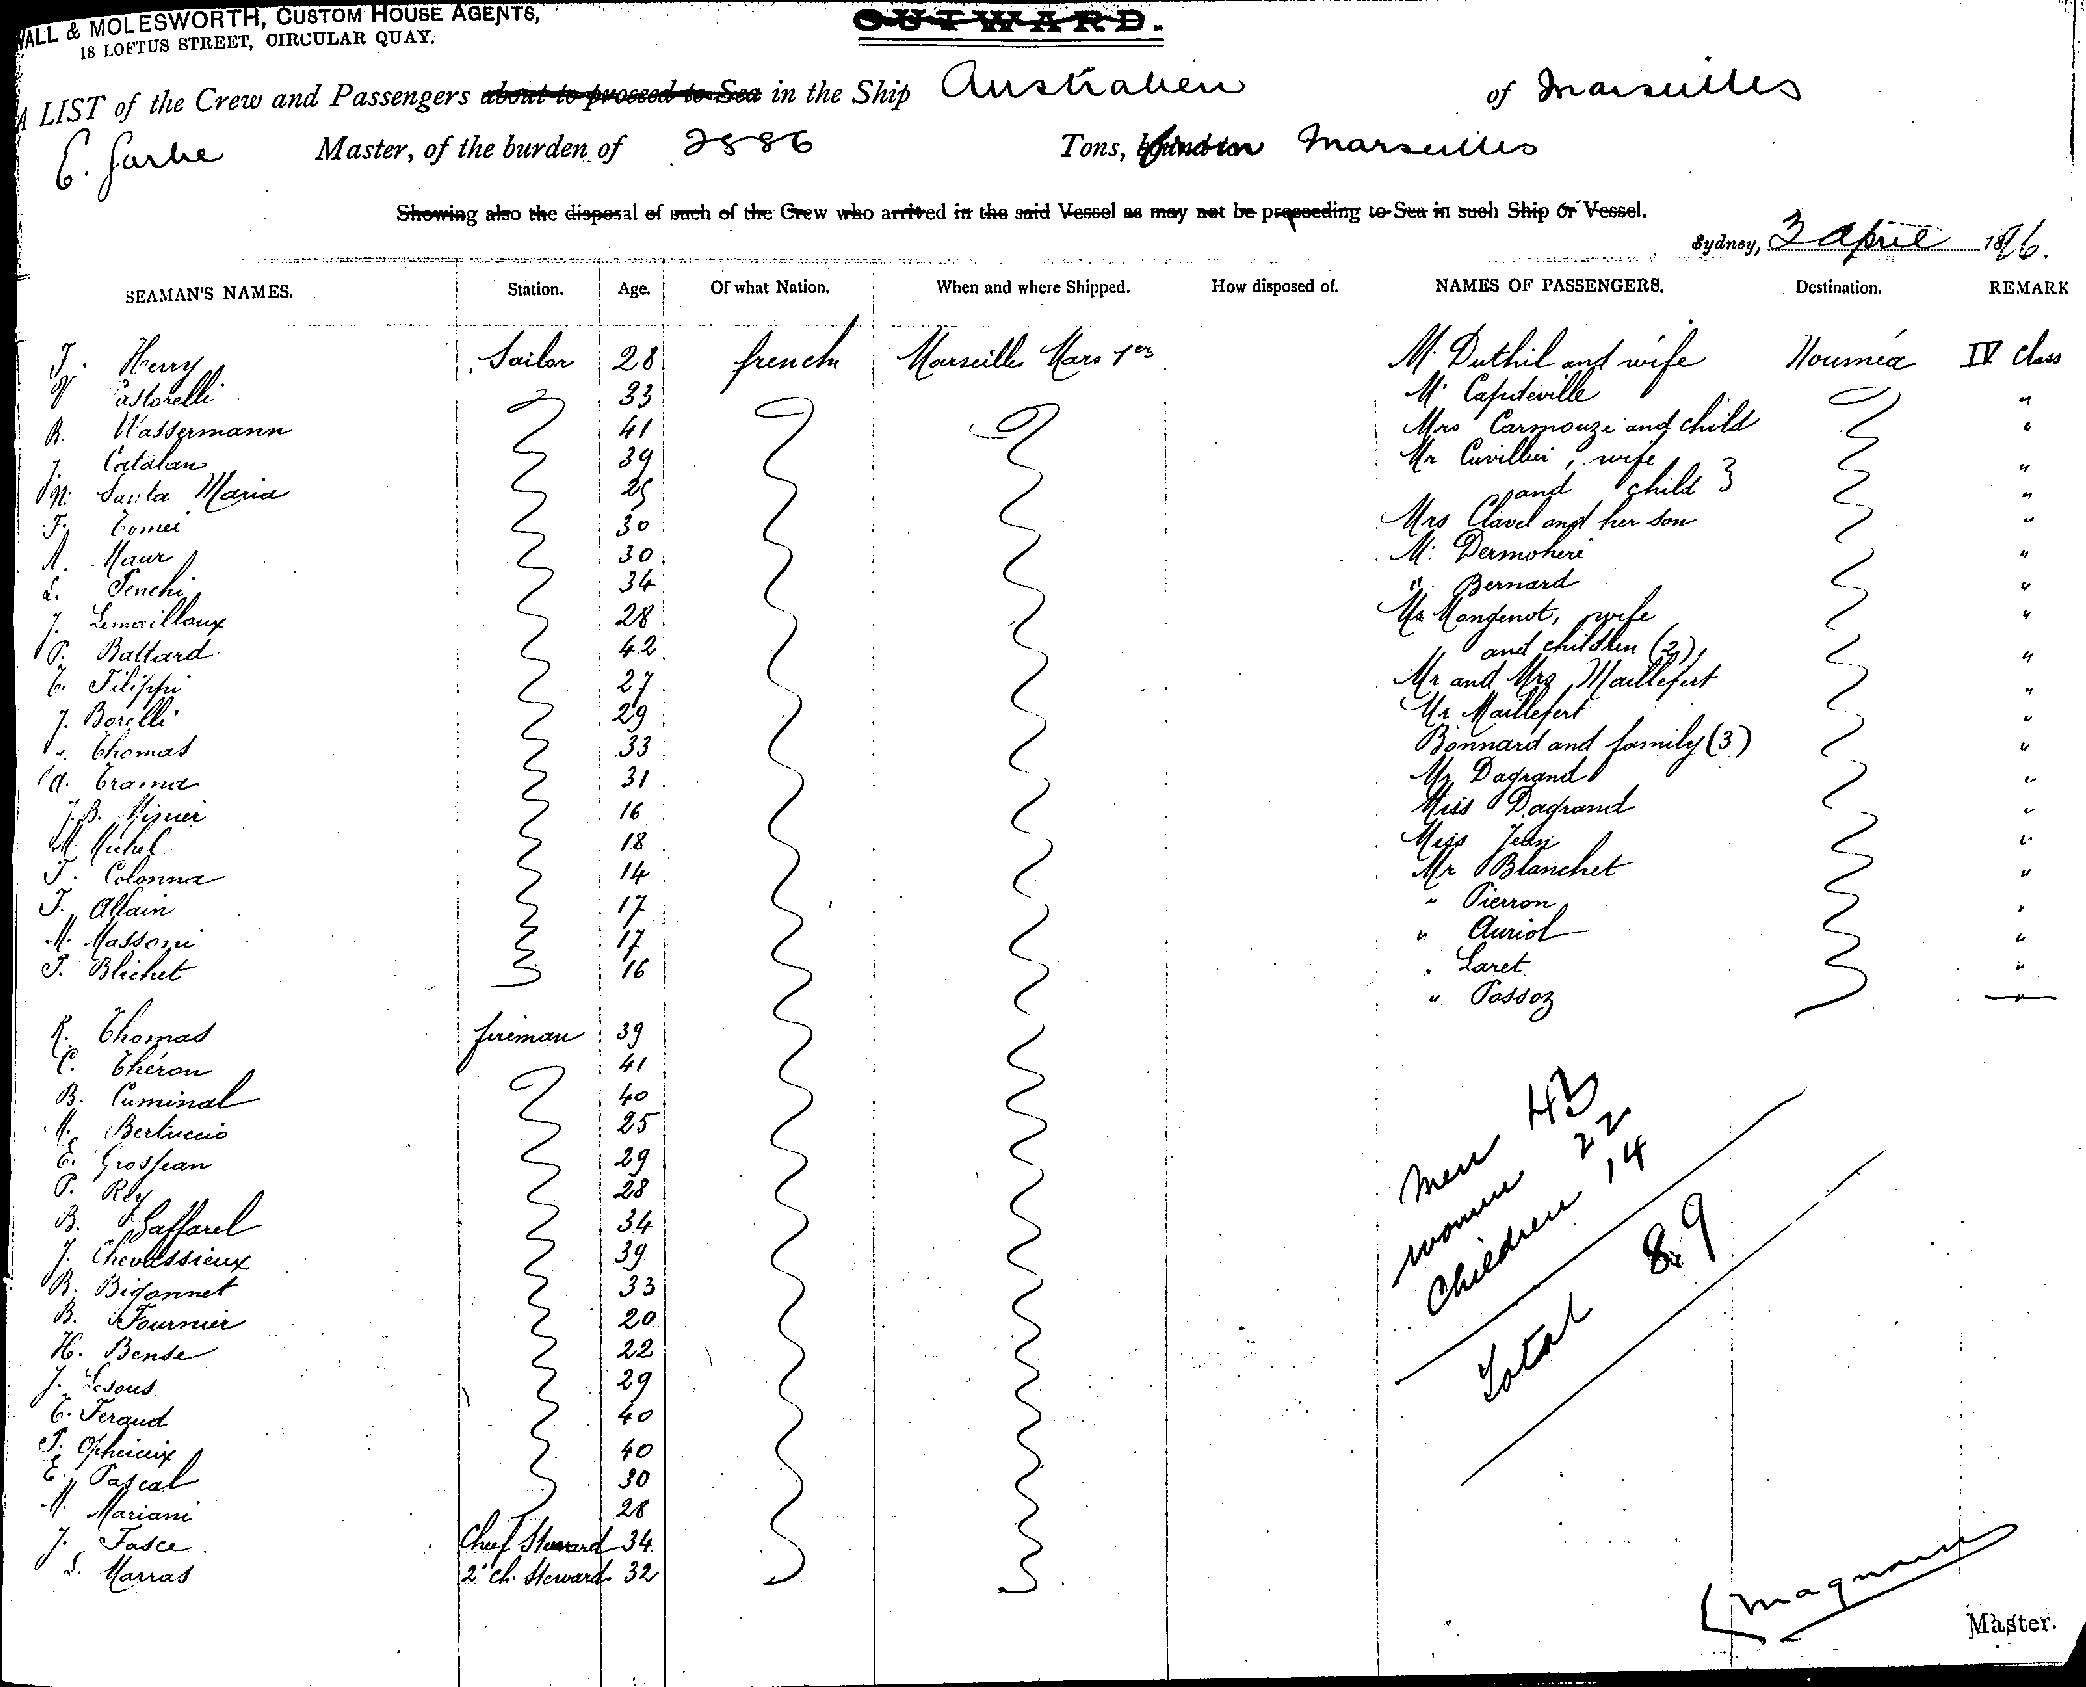 WALL & MOLESWORTH, CUSTOM HOUSE AGENTS,
18 LOFTUS STREET, CIRCULAR QUAY.
OUTWARD.
A LIST of the Crew and Passengers about to proceed to Sea in the Ship Australien of Marseilles
Master, of the burden of 2886 Tons, from Marseilles
Showing also the disposal of such of the Crew who arrived in the said Vessel as may not be proceeding to Sea in such Ship or Vessel.
Sydney, 3 April 1896.
SEAMAN'S NAMES. Station. Age. Of what Nation. When and where Shipped. How disposed of. NAMES OF PASSENGERS. Destination. REMARK
J. Henry Sailor 28 french Marseille Mars 1er M. Duthil and wife Nouméa IV Class
Castorelli 33 M. Caputeville "
R. Wassermann 41 Mrs Carmouze and child "
J. Catalan 39 Mr Cuvillier, wife "
Santa Maria 25 and child "
F. Tomei 30 Mrs Clavel and her son "
A. Maur 30 M. Dermoheri "
L. Fenchi 34 " Bernard "
J. Lemaillaux 28 Mr Mangenot, wife "
P. Battard 42 and children (2) "
Filippi 27 Mr and Mrs Maillefert "
J. Borelli 29 Mr Maillefert "
Thomas 33 Bonnard and family (3) "
Trama 31 Mr Dagrand "
J.B. 16 Miss Dagrand "
M. Michel 18 Miss "
J. Colonna 14 Mr Blanchet "
J. Allain 17 " Pierron "
M. Massoni 17 " Auriol "
J. Blichet 16 " Laret "
" Passoz "
R. Thomas fireman 39
C. Théron 41
B. Cuminal 40
Bertuccio 25
E. Grosjean 29
P. Rey 28
B. Gaffarel 34
J. Chevassieux 39
R. Bigonnet 33
B. Fournier 20
H. Bense 22
J. 29
Feraud 40
40
E. Pascal 30
M. Mariani 28
J. Fasce Chief Steward 34
L. Marras 2d ch. Steward 32
men 43
women 22
Children 14
Total 89
Master.